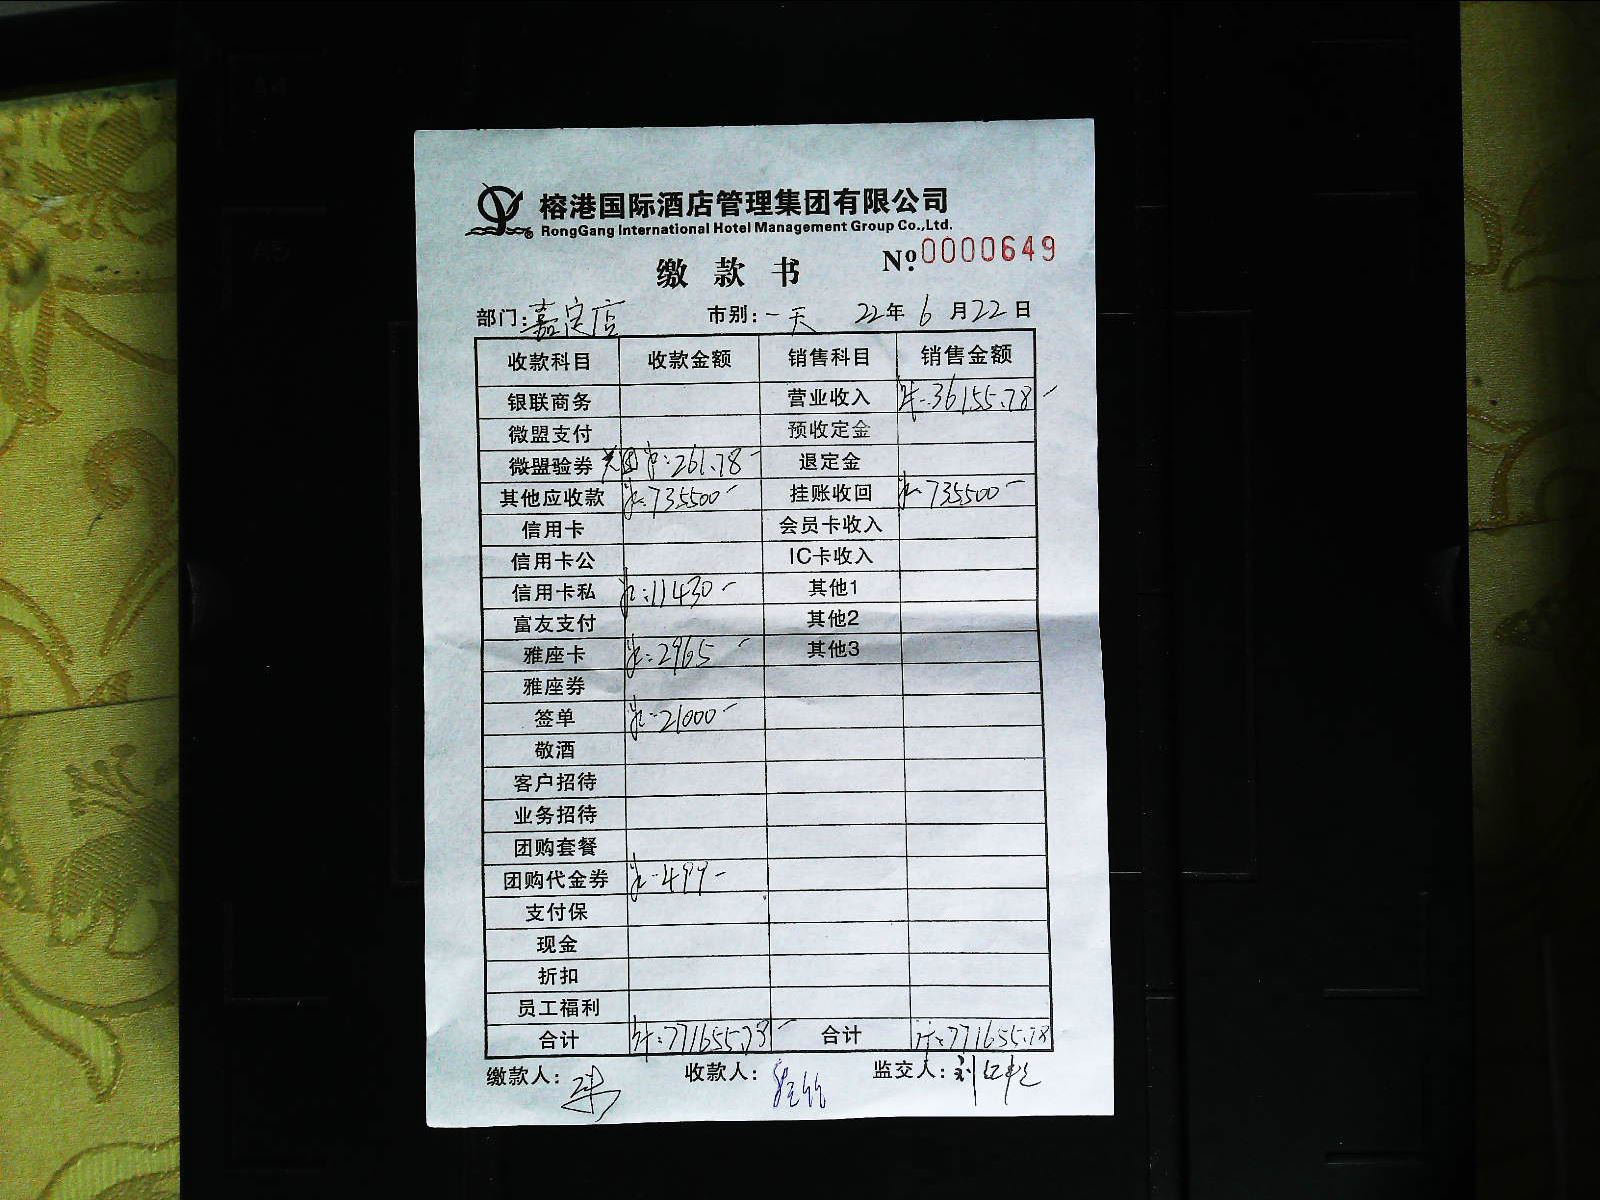 榕港国际酒店管理集团有限公司
RongGang International Hotel Management Group Co.,Ltd.
No.0000649
缴款书
部门:嘉定店 市别:一天 22年6月22日
收款科目 收款金额 销售科目 销售金额
银联商务 营业收入 计:36155.78
微盟支付 预收定金
微盟验券 美团 计:261.78 退定金
其他应收款 计:735500 挂账收回 计:735500
信用卡 会员卡收入
信用卡公 IC卡收入
信用卡私 计:11430 其他1
富友支付 其他2
雅座卡 计:2965 其他3
雅座券
签单 计:21000
敬酒
客户招待
业务招待
团购套餐
团购代金券 计:499
支付保
现金
折扣
员工福利
合计 计:771655.78 合计 计:771655.78
缴款人: 收款人: 监交人:刘
A4
A5